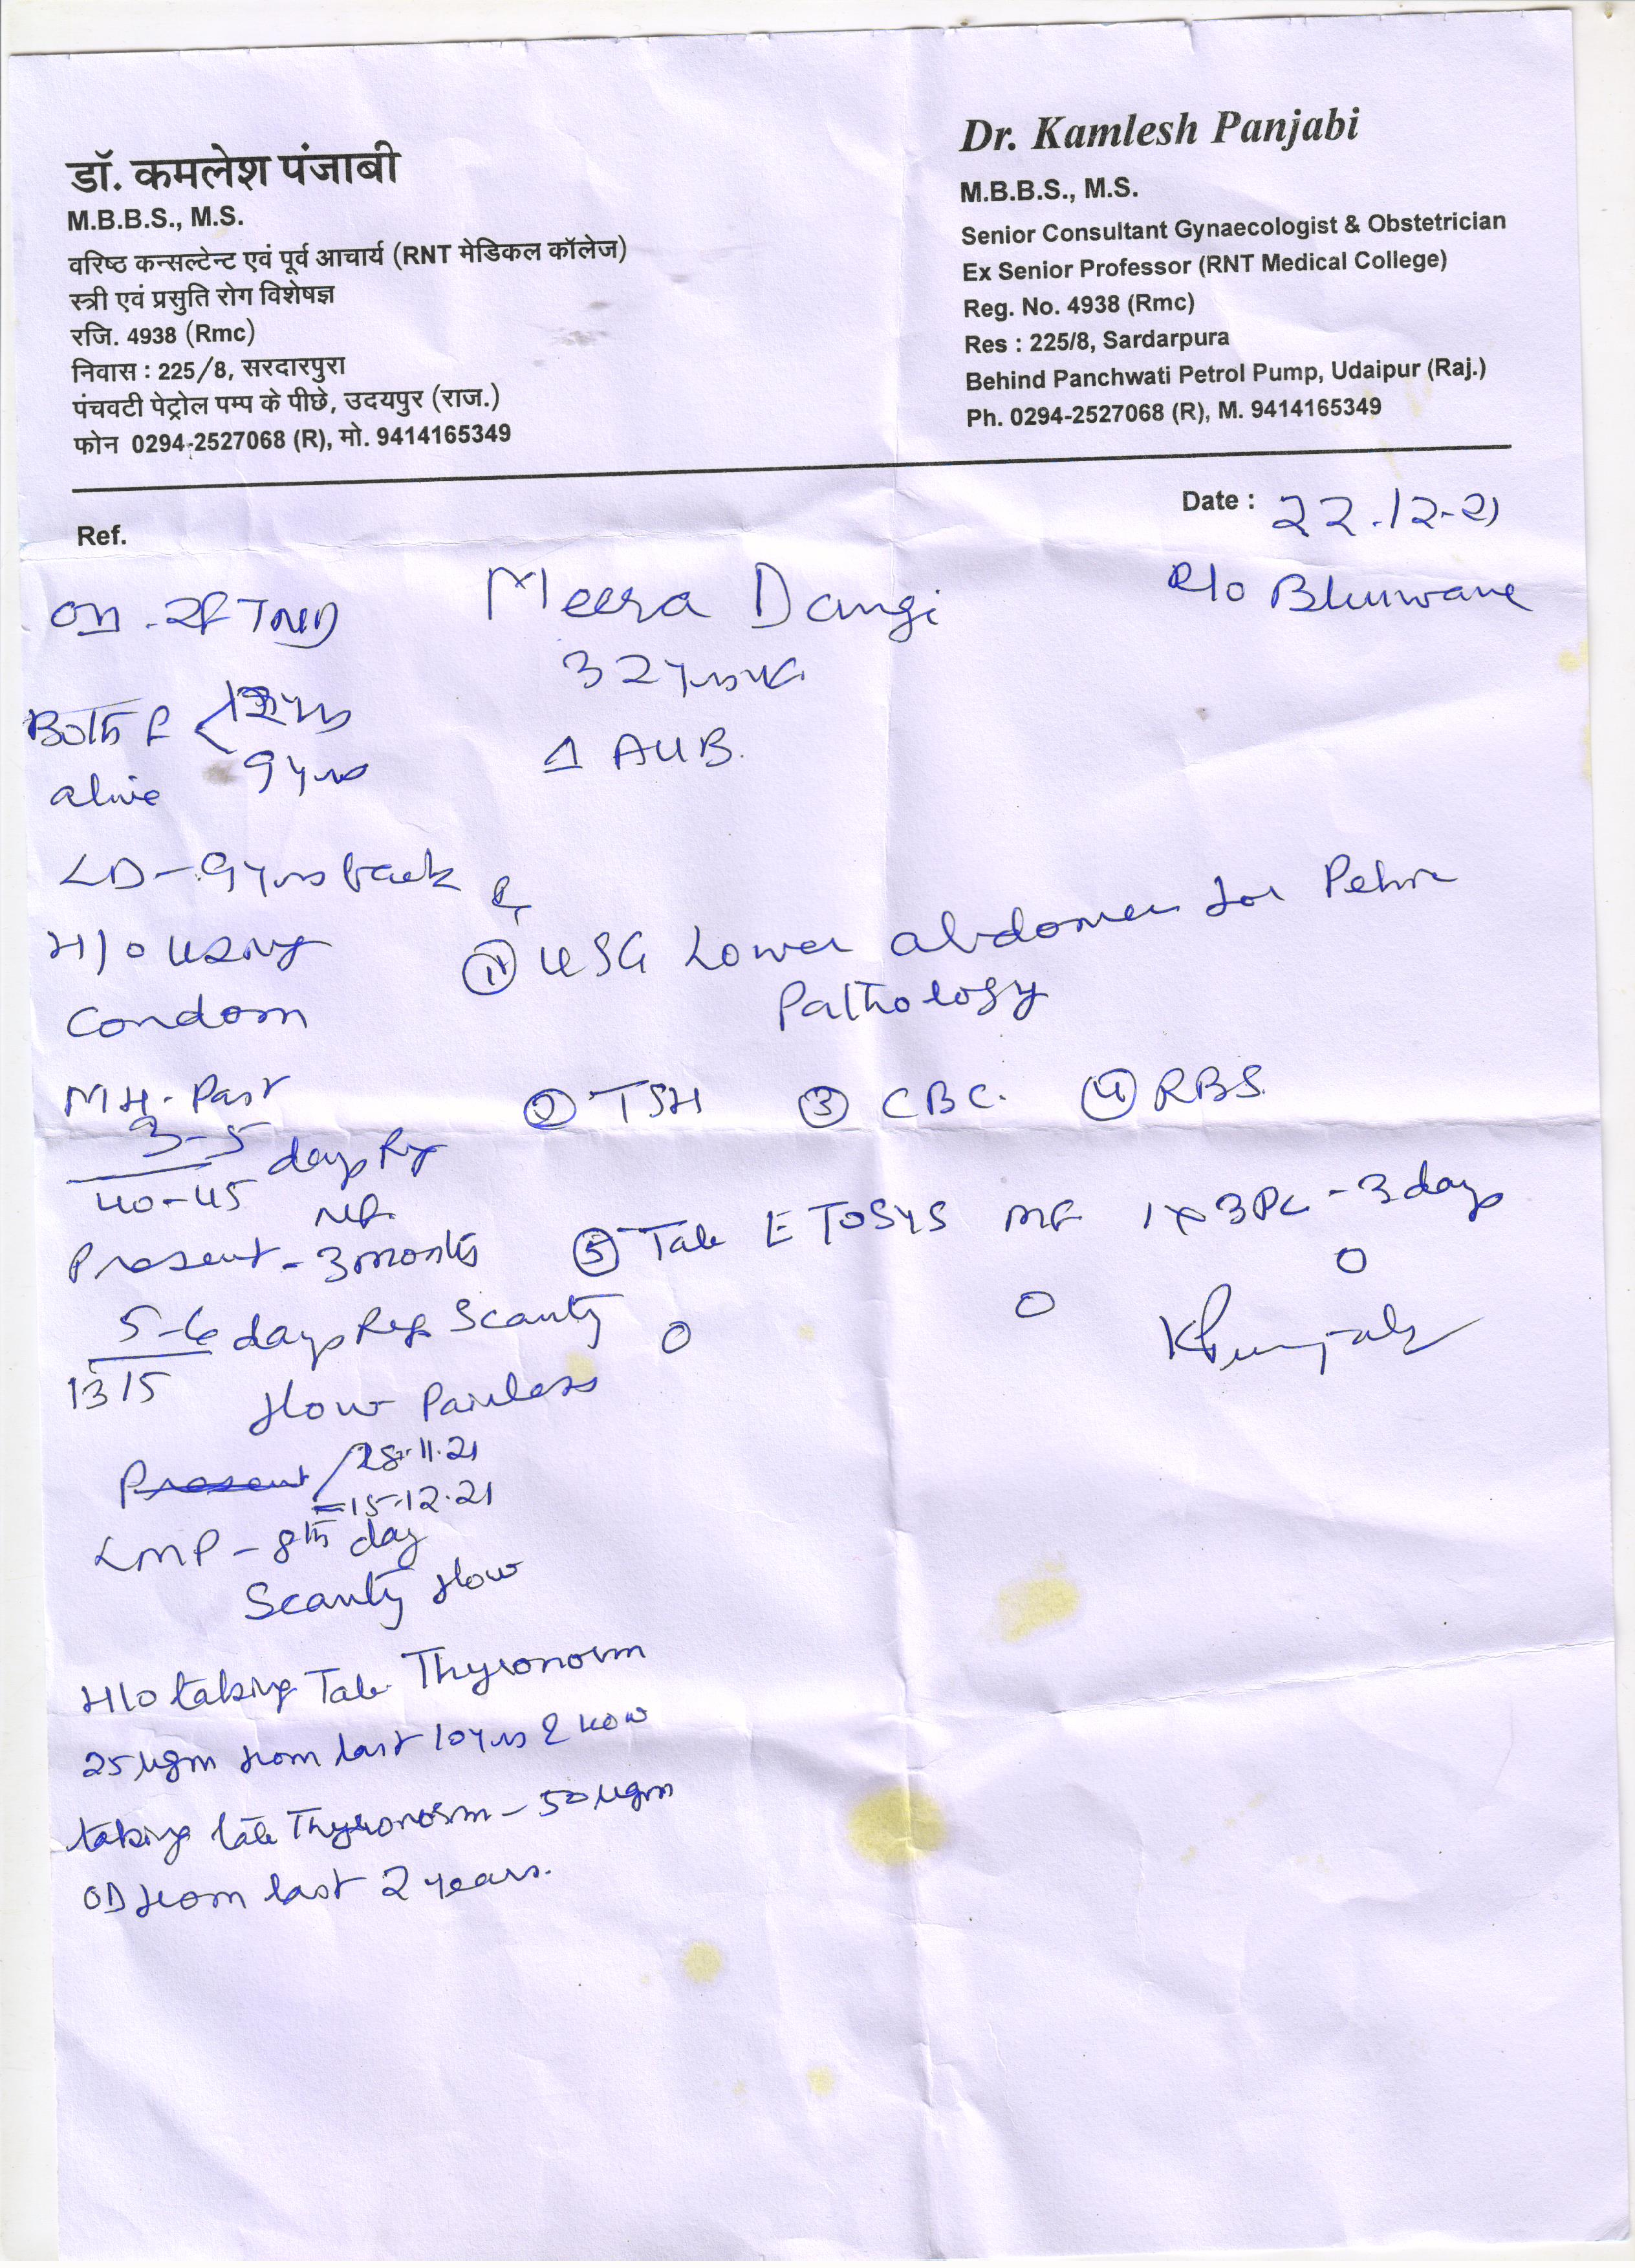 डॉ. कमलेश पंजाबी
M.B.B.S., M.S.
वरिष्ठ कन्सल्टेन्ट एवं पूर्व आचार्य (RNT मेडिकल कॉलेज)
स्त्री एवं प्रसुति रोग विशेषज्ञ
रजि. 4938 (Rmc)
निवास : 225/8, सरदारपुरा
पंचवटी पेट्रोल पम्प के पीछे, उदयपुर (राज.)
फोन 0294-2527068 (R), मो. 9414165349
Dr. Kamlesh Panjabi
M.B.B.S., M.S.
Senior Consultant Gynaecologist & Obstetrician
Ex Senior Professor (RNT Medical College)
Reg. No. 4938 (Rmc)
Res : 225/8, Sardarpura
Behind Panchwati Petrol Pump, Udaipur (Raj.)
Ph. 0294-2527068 (R), M. 9414165349
Ref.
Date : 22.12.21
Meera Dangi
R/o Bhuwana
32
Δ AUB.
FTND
Both F
9 yrs
alive
LD - 9 yrs back
H/o using
Condom
MH. Past
3-5 days
40-45
Present - 3 months
5-6 days Reg Scanty
13 15
flow Painless
Present 28.11.21
=15.12.21
LMP - 8th day
Scanty flow
H/o taking Tab. Thyronorm
25 ugm from last 10 yrs & now
taking tab Thyronorm - 50 ugm
OD from last 2 years.
① USG Lower abdomen for Pelvic
Pathology
② TSH ③ CBC. ④ RBS
⑤ Tab ETOSYS MF 1x3 PC - 3 days